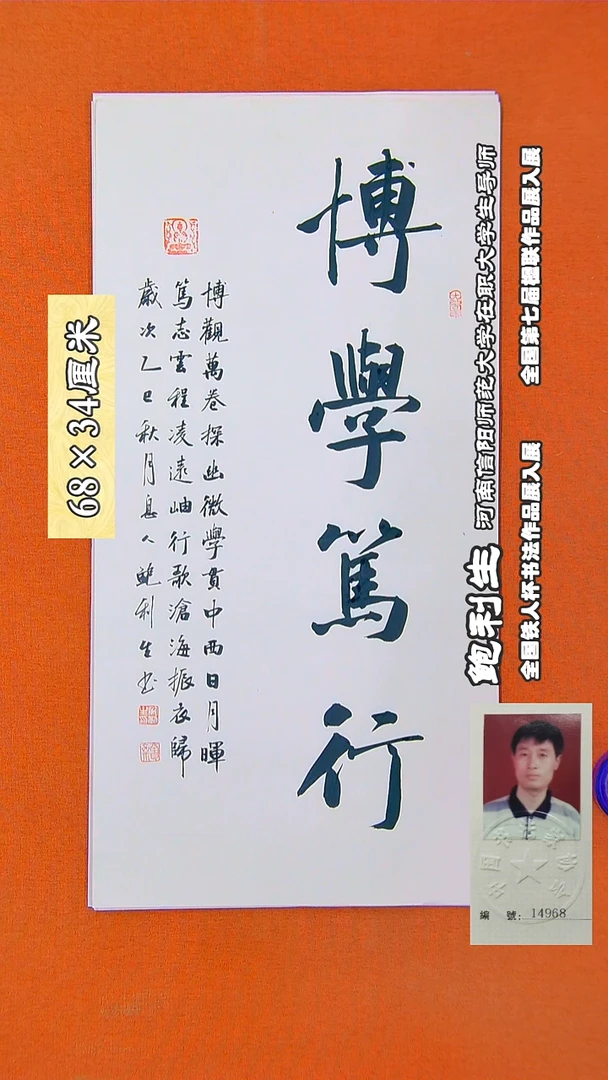 博學篤行
博觀萬卷探幽微學貫中西日月暉
篤志雲程凌遠岫行歌滄海振衣歸
歲次乙巳秋月息人鮑利生书
68×34厘米
鲍利生
河南信阳师范大学在职大学生导师
全国铁人杯书法作品展入展
全国第七届楹联作品展入展
編 號: 14968